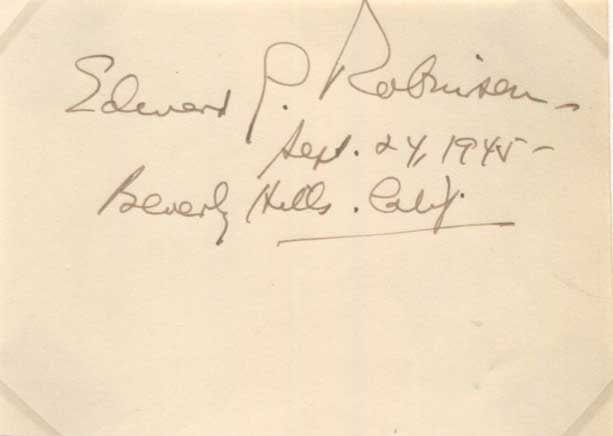 Edward G. Robinson -
Sept. 24, 1945 -
Beverly Hills. Calif.